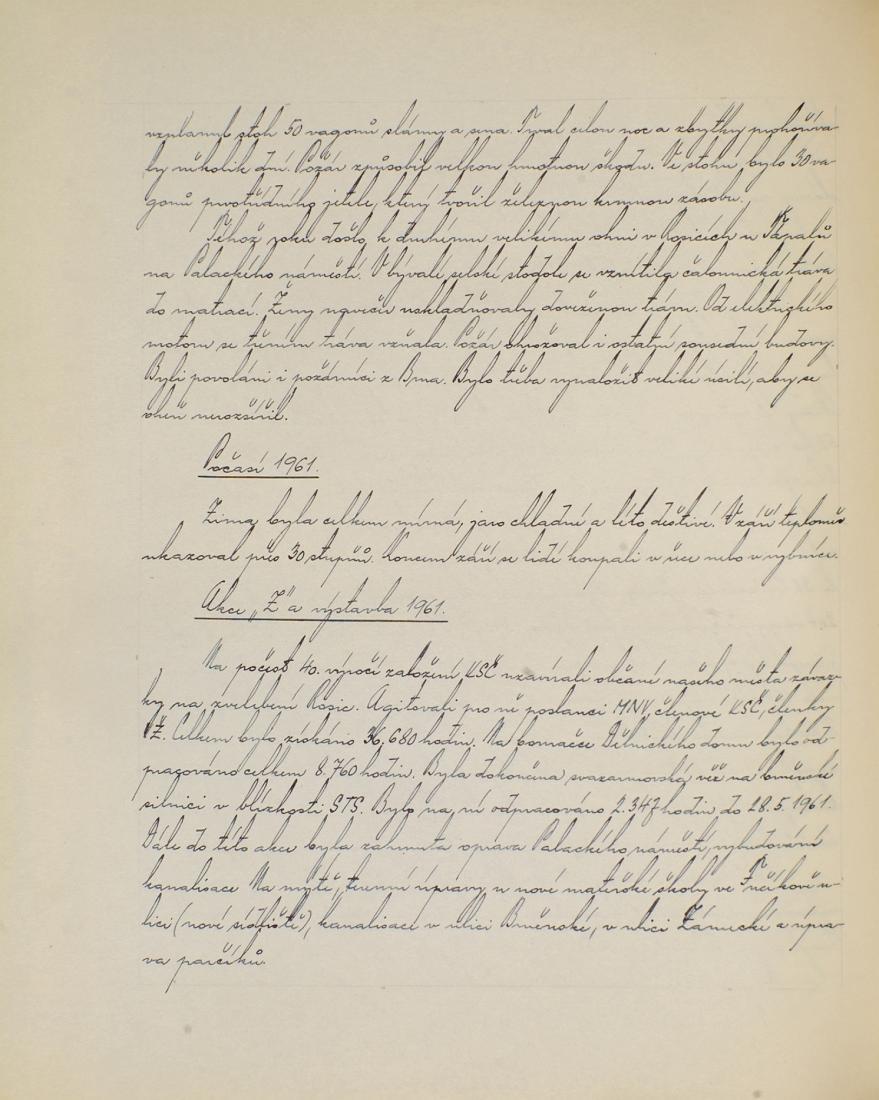 vzplanul stoh 50 vagonů slámy a sena. Trval celou noc a zbytky prohoříva-
ly několik dní. Požár způsobil velkou hmotnou škodu. Ve stohu bylo 30 va-
gonů prvotřídního jetele, který tvořil železnou krmnou zásobu.
Téhož roku došlo k druhému velikému ohni v Rosicích u Ťápalů
na Palackého náměstí. V bývalé selské stodole se vznítila čalounická tráva
do matrací. Ženy navečer uskladňovaly dovezenou trávu. Od elektrického
motoru se třením tráva vzňala. Požár ohrožoval i ostatní sousední budovy.
Byli povoláni i požárníci z Brna. Bylo třeba vynaložit veliké úsilí, aby se
oheň nerozšířil.
Počasí 1961.
Zima byla celkem mírná, jaro chladné a léto deštivé. V září teploměr
ukazoval přes 30 stupňů. Koncem září se lidé koupali v řece nebo v rybníce.
Akce „Z" a výstavba 1961.
Na počest 40. výročí založení KSČ uzavírali občané našeho města závaz-
ky na zvelebení Rosic. Agitovali pro ně poslanci MNV, členové KSČ, členky
VŽ. Celkem bylo získáno 36.680 hodin. Na bouračce Dělnického domu bylo od-
pracováno celkem 8.760 hodin. Byla dokončena svazarmovská věž na brněnské
silnici v blízkosti STS. Bylo na ní odpracováno 2.347 hodin do 28.5.1961.
Dále do této akce byla zahrnuta oprava Palackého náměstí, vybudování
kanalisace Na mýtě, terenní úpravy u nové mateřské školy ve Fučíkově u-
lici (nové sídliště), kanalisace v ulici Brněnské, v ulici Zámecké a úpra-
va parčíků.